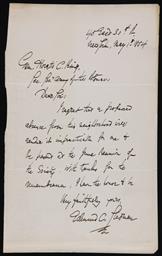 45 East 30th St
New York, May 1st 1884
Gen. Horatio C. King,
Dear Sir:
I regret that a prolonged
absence from this neighborhood will
render it impracticable for me to
be present at the June Reunion of
the Society. With thanks for the
remembrance, I have the honor to be
Very faithfully yours,
Edmund C. Stedman